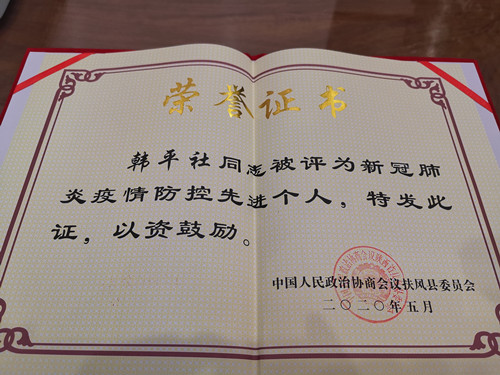 荣誉证书
韩平社同志被评为新冠肺
炎疫情防控先进个人，特发此
证，以资鼓励。
中国人民政治协商会议扶风县委员会
二〇二〇年五月